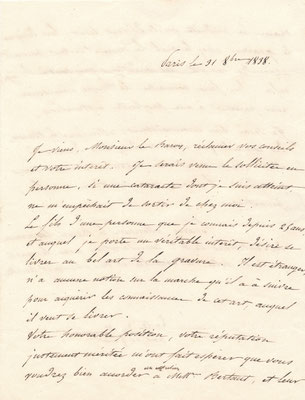 Paris le 31 8bre 1818.
Je viens, Monsieur le Baron, réclamer vos conseils
et votre intérêt. Je serais venu le solliciter en
personne, si une cataracte dont je suis atteint
ne m'empêchait de sortir de chez moi.
Le fils d'une personne que je connais depuis 25 ans
et auquel je porte un véritable intérêt, désire se
livrer au bel art de la gravure. Il est étranger
n'a aucune notion sur la marche qu'il a à suivre
pour acquérir les connaissances de cet art auquel
il veut se livrer.
Votre honorable position, votre réputation
justement méritée m'ont fait espérer que vous
voudrez bien accorder à Bertaut, et leur